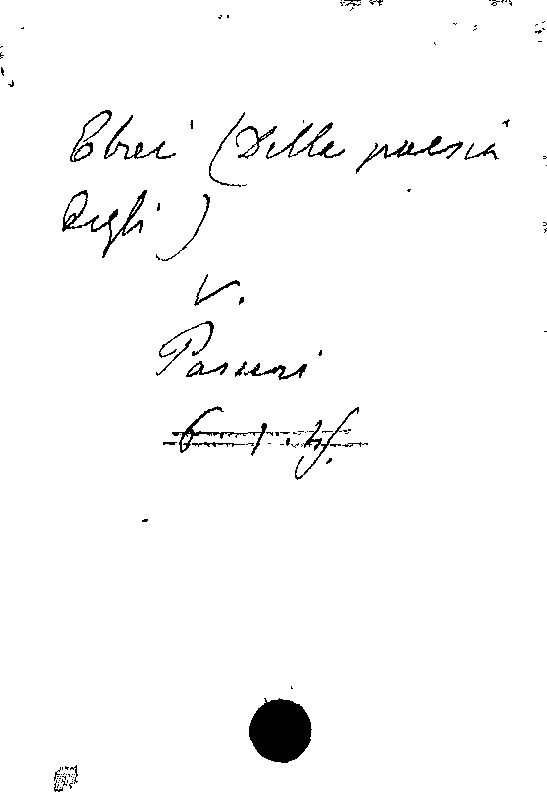 Ebrei (Della poesia
degli)
V.
Pasini
6 1.